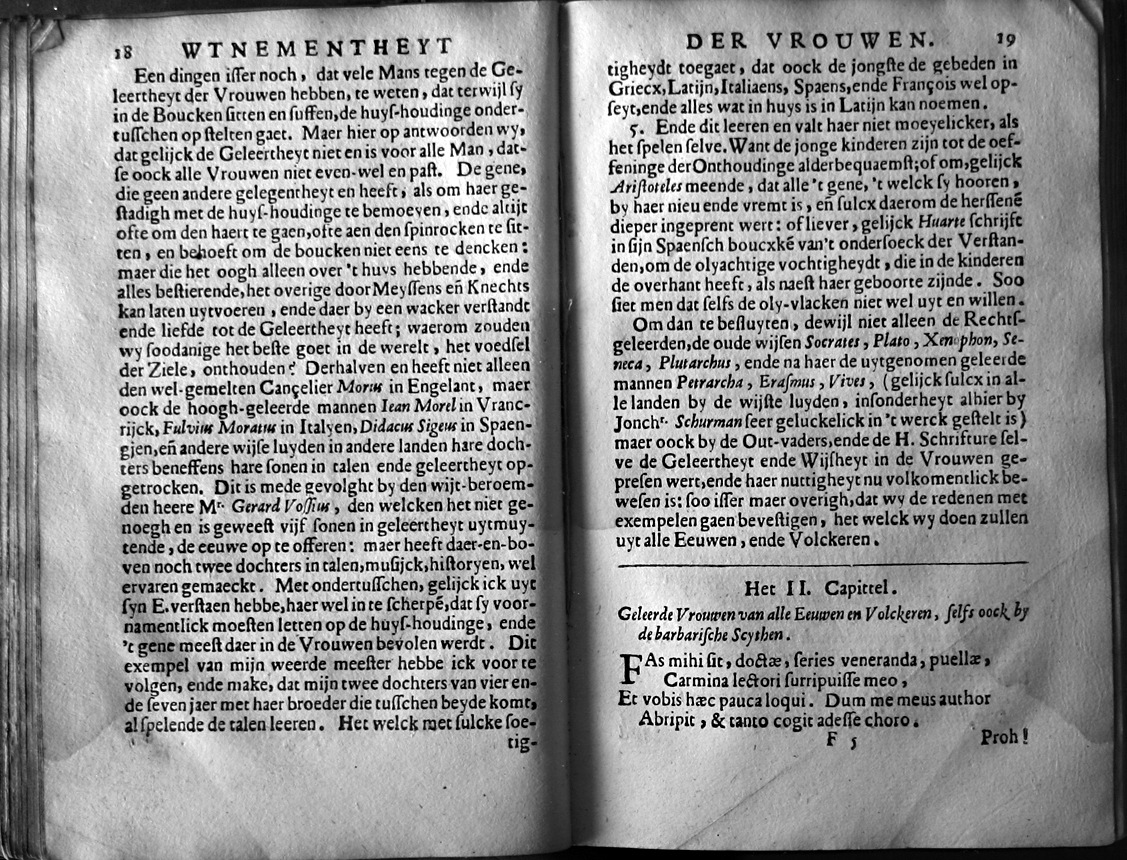 18 WTNEMENTHEYT
Een dingen isser noch, dat vele Mans tegen de Ge-
leertheyt der Vrouwen hebben, te weten, dat terwijl sy
in de Boucken sitten en suffen, de huys-houdinge onder-
tusschen op stelten gaet. Maer hier op antwoorden wy,
dat gelijck de Geleertheyt niet en is voor alle Man, dat-
se oock alle Vrouwen niet even-wel en past. De gene,
die geen andere gelegentheyt en heeft, als om haer ge-
stadigh met de huys-houdinge te bemoeyen, ende altijt
ofte om den haert te gaen, ofte aen den spinrocken te sit-
ten, en behoeft om de boucken niet eens te dencken:
maer die het oogh alleen over 't huys hebbende, ende
alles bestierende, het overige door Meyssens eñ Knechts
kan laten uytvoeren, ende daer by een wacker verstandt
ende liefde tot de Geleertheyt heeft; waerom zouden
wy soodanige het beste goet in de werelt, het voedsel
der Ziele, onthouden? Derhalven en heeft niet alleen
den wel-gemelten Cançelier Morus in Engelant, maer
oock de hoogh-geleerde mannen Iean Morel in Vranc-
rijck, Fulvius Moratus in Italyen, Didacus Sigeus in Spaen-
gjen, eñ andere wijse luyden in andere landen hare doch-
ters beneffens hare sonen in talen ende geleertheyt op-
getrocken. Dit is mede gevolght by den wijt-beroem-
den heere Mr. Gerard Vossius, den welcken het niet ge-
noegh en is geweest vijf sonen in geleertheyt uytmuy-
tende, de eeuwe op te offeren: maer heeft daer-en-bo-
ven noch twee dochters in talen, musijck, historyen, wel
ervaren gemaeckt. Met ondertusschen, gelijck ick uyt
syn E. verstaen hebbe, haer wel in te scherpẽ, dat sy voor-
namentlick moesten letten op de huys-houdinge, ende
't gene meest daer in de Vrouwen bevolen werdt. Dit
exempel van mijn weerde meester hebbe ick voor te
volgen, ende make, dat mijn twee dochters van vier en-
de seven jaer met haer broeder die tusschen beyde komt,
al spelende de talen leeren. Het welck met sulcke soe-
tig-
DER VROUWEN. 19
tigheydt toegaet, dat oock de jongste de gebeden in
Griecx, Latijn, Italiaens, Spaens, ende François wel op-
seyt, ende alles wat in huys is in Latijn kan noemen.
5. Ende dit leeren en valt haer niet moeyelicker, als
het spelen selve. Want de jonge kinderen zijn tot de oef-
feninge der Onthoudinge alderbequaemst; of om, gelijck
Aristoteles meende, dat alle 't gene, 't welck sy hooren,
by haer nieu ende vremt is, eñ sulcx daerom de herssenẽ
dieper ingeprent wert: of liever, gelijck Huarte schrijft
in sijn Spaensch boucxkẽ van 't ondersoeck der Verstan-
den, om de olyachtige vochtigheydt, die in de kinderen
de overhant heeft, als naest haer geboorte zijnde. Soo
siet men dat selfs de oly-vlacken niet wel uyt en willen.
Om dan te besluyten, dewijl niet alleen de Rechts-
geleerden, de oude wijsen Socrates, Plato, Xenophon, Se-
neca, Plutarchus, ende na haer de uytgenomen geleerde
mannen Petrarcha, Erasmus, Vives, (gelijck sulcx in al-
le landen by de wijste luyden, insonderheyt alhier by
Jonchr. Schurman seer geluckelick in 't werck gestelt is)
maer oock by de Out-vaders, ende de H. Schrifture sel-
ve de Geleertheyt ende Wijsheyt in de Vrouwen ge-
presen wert, ende haer nuttigheyt nu volkomentlick be-
wesen is: soo isser maer overigh, dat wy de redenen met
exempelen gaen bevestigen, het welck wy doen zullen
uyt alle Eeuwen, ende Volckeren.
Het II. Capittel.
Geleerde Vrouwen van alle Eeuwen en Volckeren, selfs oock by
de barbarische Scythen.
FAs mihi sit, doctæ, series veneranda, puellæ,
Carmina lectori surripuisse meo,
Et vobis hæc pauca loqui. Dum me meus author
Abripit, & tanto cogit adesse choro.
F 5 Proh!